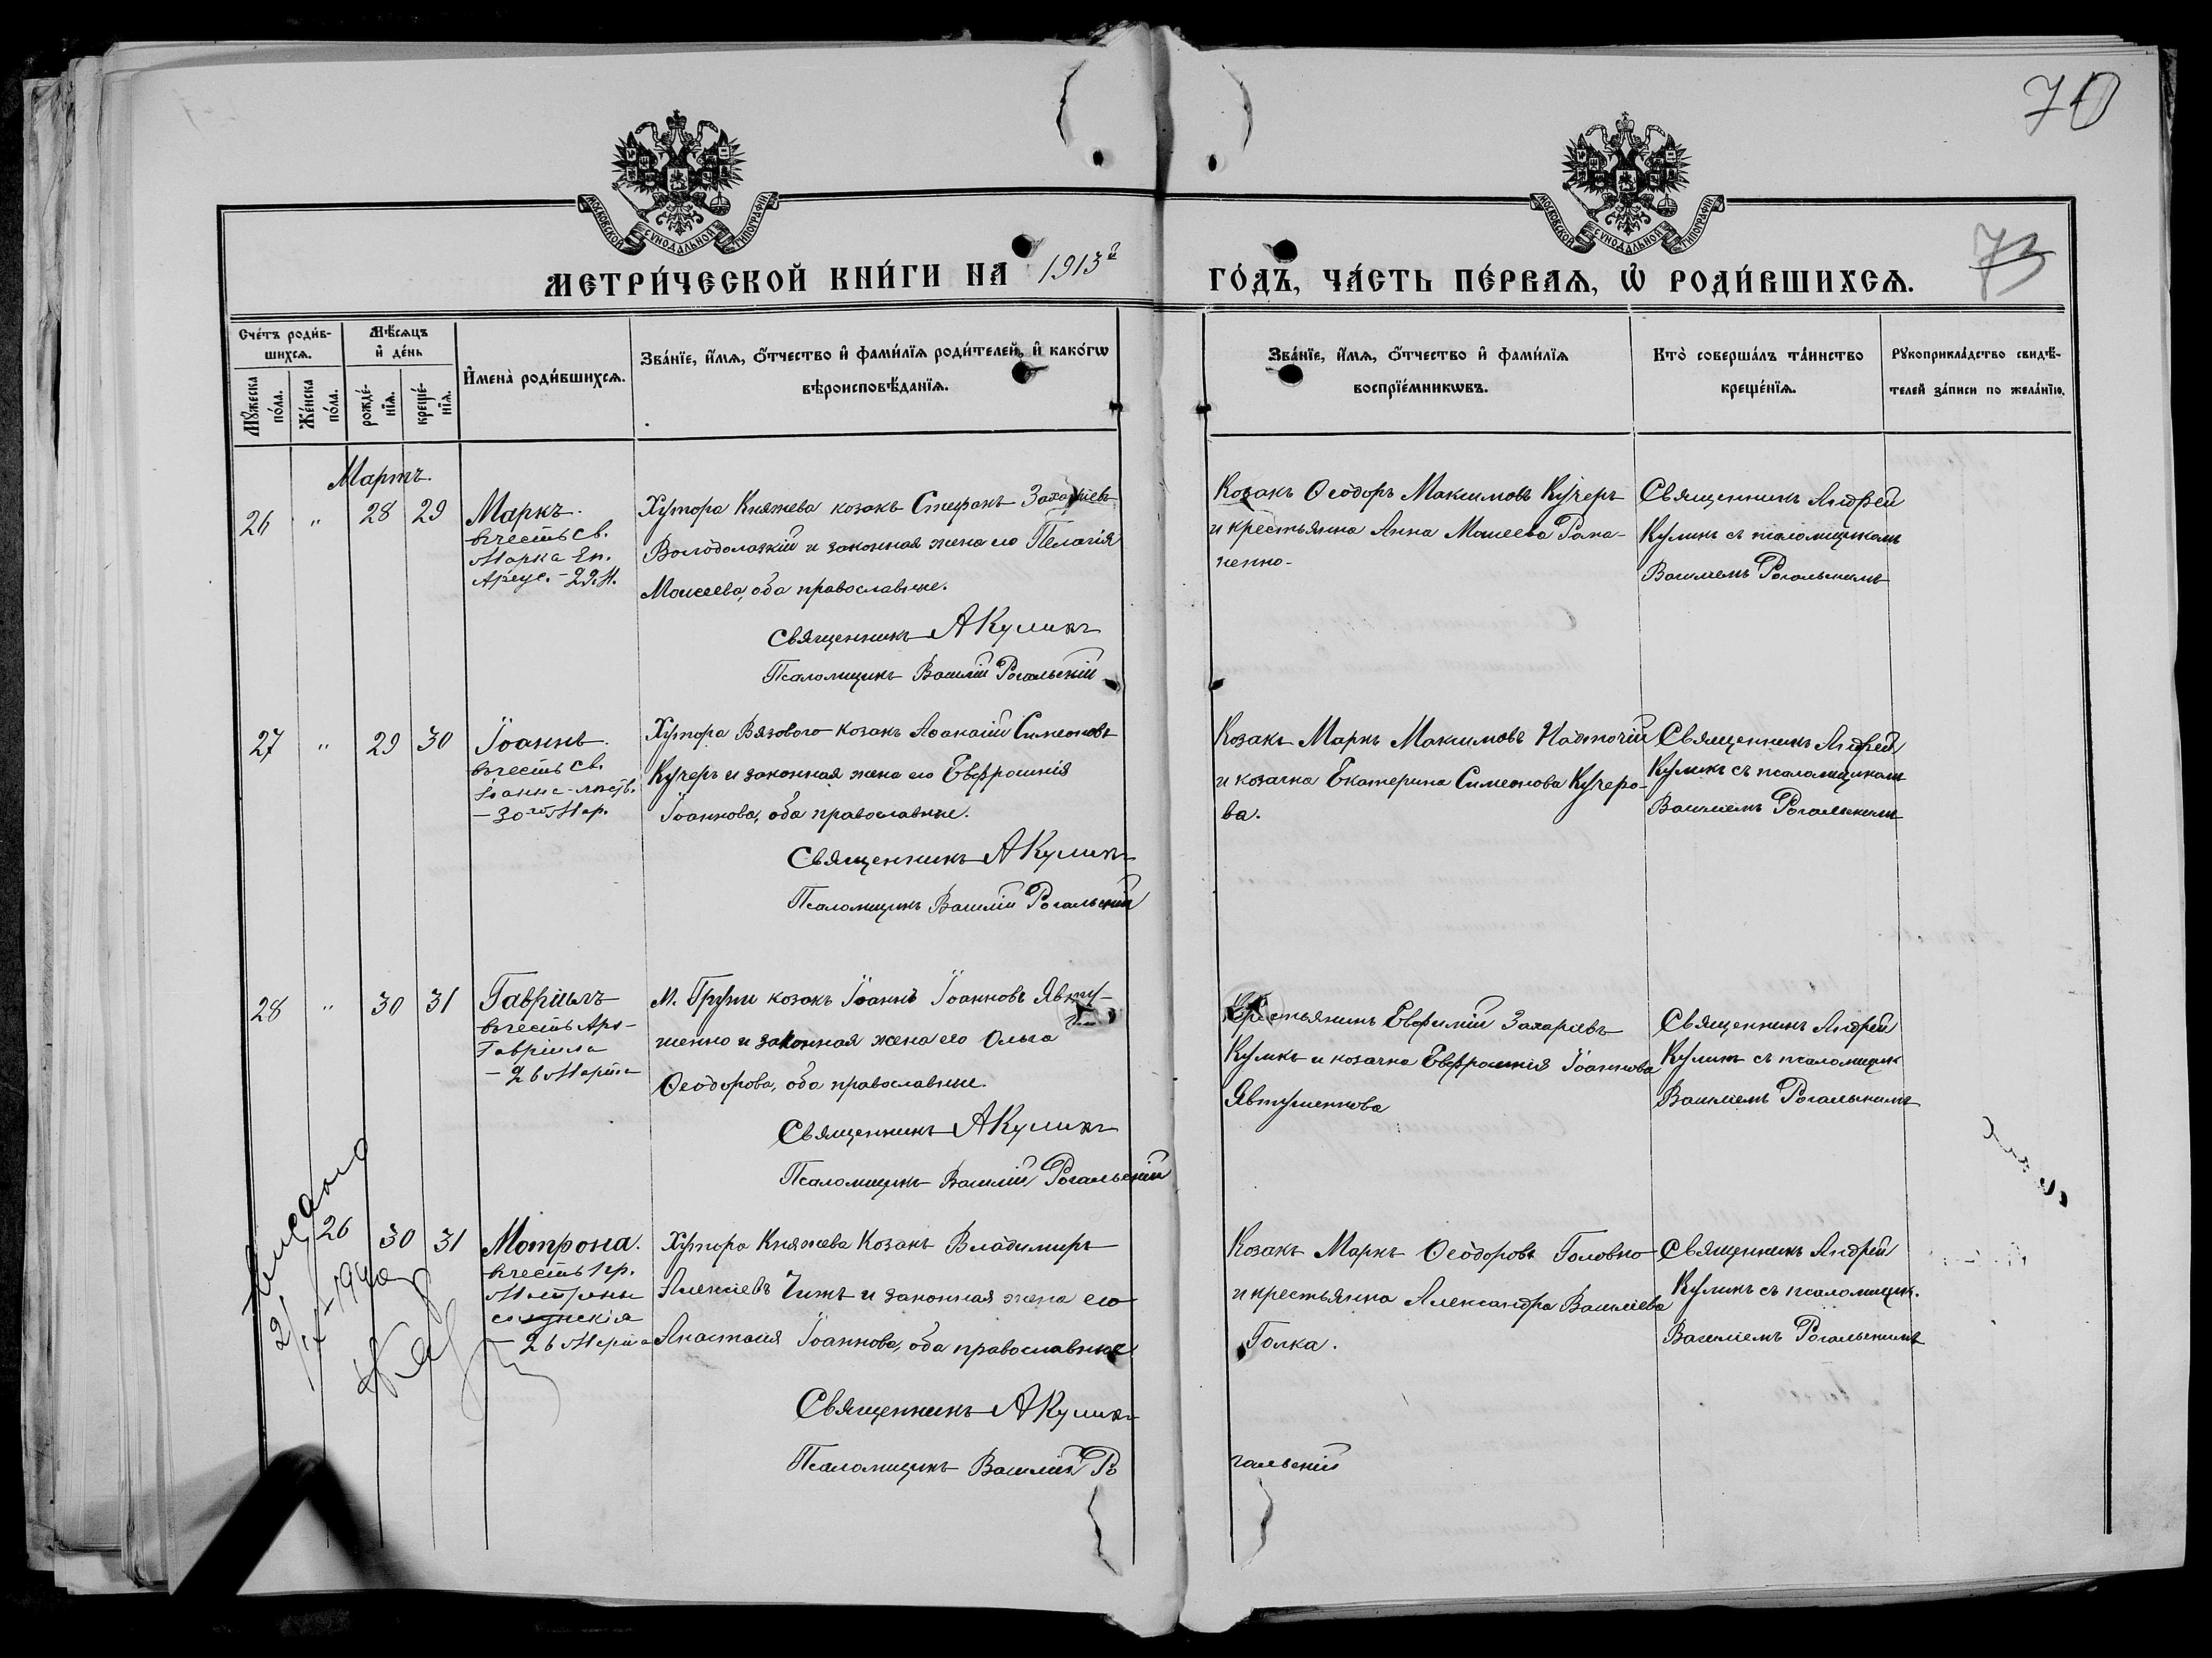 70
73
МОСКОВСКОЙ СѴНОДАЛЬНОЙ ТИПОГРАФІИ
МОСКОВСКОЙ СѴНОДАЛЬНОЙ ТИПОГРАФІИ
МЕТРИ́ЧЕСКОЙ КНИ́ГИ НА 1913й ГО́ДЪ, ЧА́СТЬ ПЕ́РВАѦ, Ѡ҆ РОДИ́ВШИХСѦ.
Сче́тъ роди́в-
шихсѧ.
Мꙋ́жеска по́ла.
Же́нска по́ла.
Мѣ́сѧцъ
и҆ де́нь
рожде́-
нїѧ.
креще́-
нїѧ.
И҆мена̀ роди́вшихсѧ.
Зва́нїе, и҆́мѧ, ѻ҆́тчество и҆ фами́лїѧ роди́телей, и҆ како́гѡ
вѣроисповѣ́данїѧ.
Зва́нїе, и҆́мѧ, ѻ҆́тчество и҆ фами́лїѧ
воспрїе́мникѡвъ.
Кто̀ соверша́лъ та́инство
креще́нїѧ.
Рꙋкоприкла́дство свидѣ́-
телей за́писи по жела́нїю.
Мартъ.
26 " 28 29
Маркъ.
въ честь св.
Марка Еп.
Арефус. - 29 М.
Хутора Княжева козакъ Стефанъ Захаріевъ
Володолазкій и законная жена его Пелагія
Моисеева, оба православные.
Священникъ А Куликъ
Псаломщикъ Василій Рогальскій
Козакъ Ѳеодоръ Максимовъ Кучеръ
и крестьянка Анна Моисеева Рома-
ненко.
Священникъ Андрей
Куликъ съ псаломщикомъ
Василіемъ Рогальскимъ
27 " 29 30
Іоаннъ.
въ честь св.
Іоанна лѣств.
- 30го Мар.
Хутора Вязового козакъ Аѳанасій Симеоновъ
Кучеръ и законная жена его Евфросинія
Іоаннова, оба православные.
Священникъ А Куликъ
Псаломщикъ Василій Рогальскій
Козакъ Маркъ Максимовъ Надточій
и козачка Екатерина Симеонова Кучеро-
ва.
Священникъ Андрей
Куликъ съ псаломщикомъ
Василіемъ Рогальскимъ
28 " 30 31
Гавріилъ
въ честь Арх-
Гавріила
- 26 Марта
М. Груни козакъ Іоаннъ Іоанновъ Явту-
шенко и законная жена его Ольга
Ѳеодорова, оба православные.
Священникъ А Куликъ
Псаломщикъ Василій Рогальскій
Крестьянинъ Евфимій Захаріевъ
Куликъ и козачка Евфросинія Іоаннова
Явтушенкова
Священникъ Андрей
Куликъ съ псаломщик
Василіемъ Рогальскимъ
26 30 31
Мотрона.
въ честь пр.
Матроны
селунскія
- 26 Марта
Хутора Княжева Козакъ Владимиръ
Алексіевъ Чижъ и законная жена его
Анастасія Іоаннова, оба православные
Священникъ А Куликъ
Псаломщикъ Василій Рогальскій
Козакъ Маркъ Ѳеодоровъ Головко
и крестьянка Александра Василіева
Голка.
Священникъ Андрей
Куликъ съ псаломщик.
Василіемъ Рогальскимъ